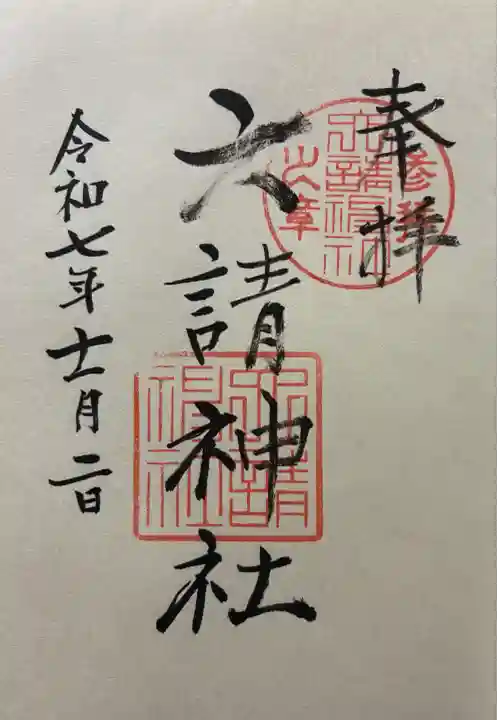 奉拝
参拝
之章
六請神社
六請神社
六請神社
令和七年十一月二日